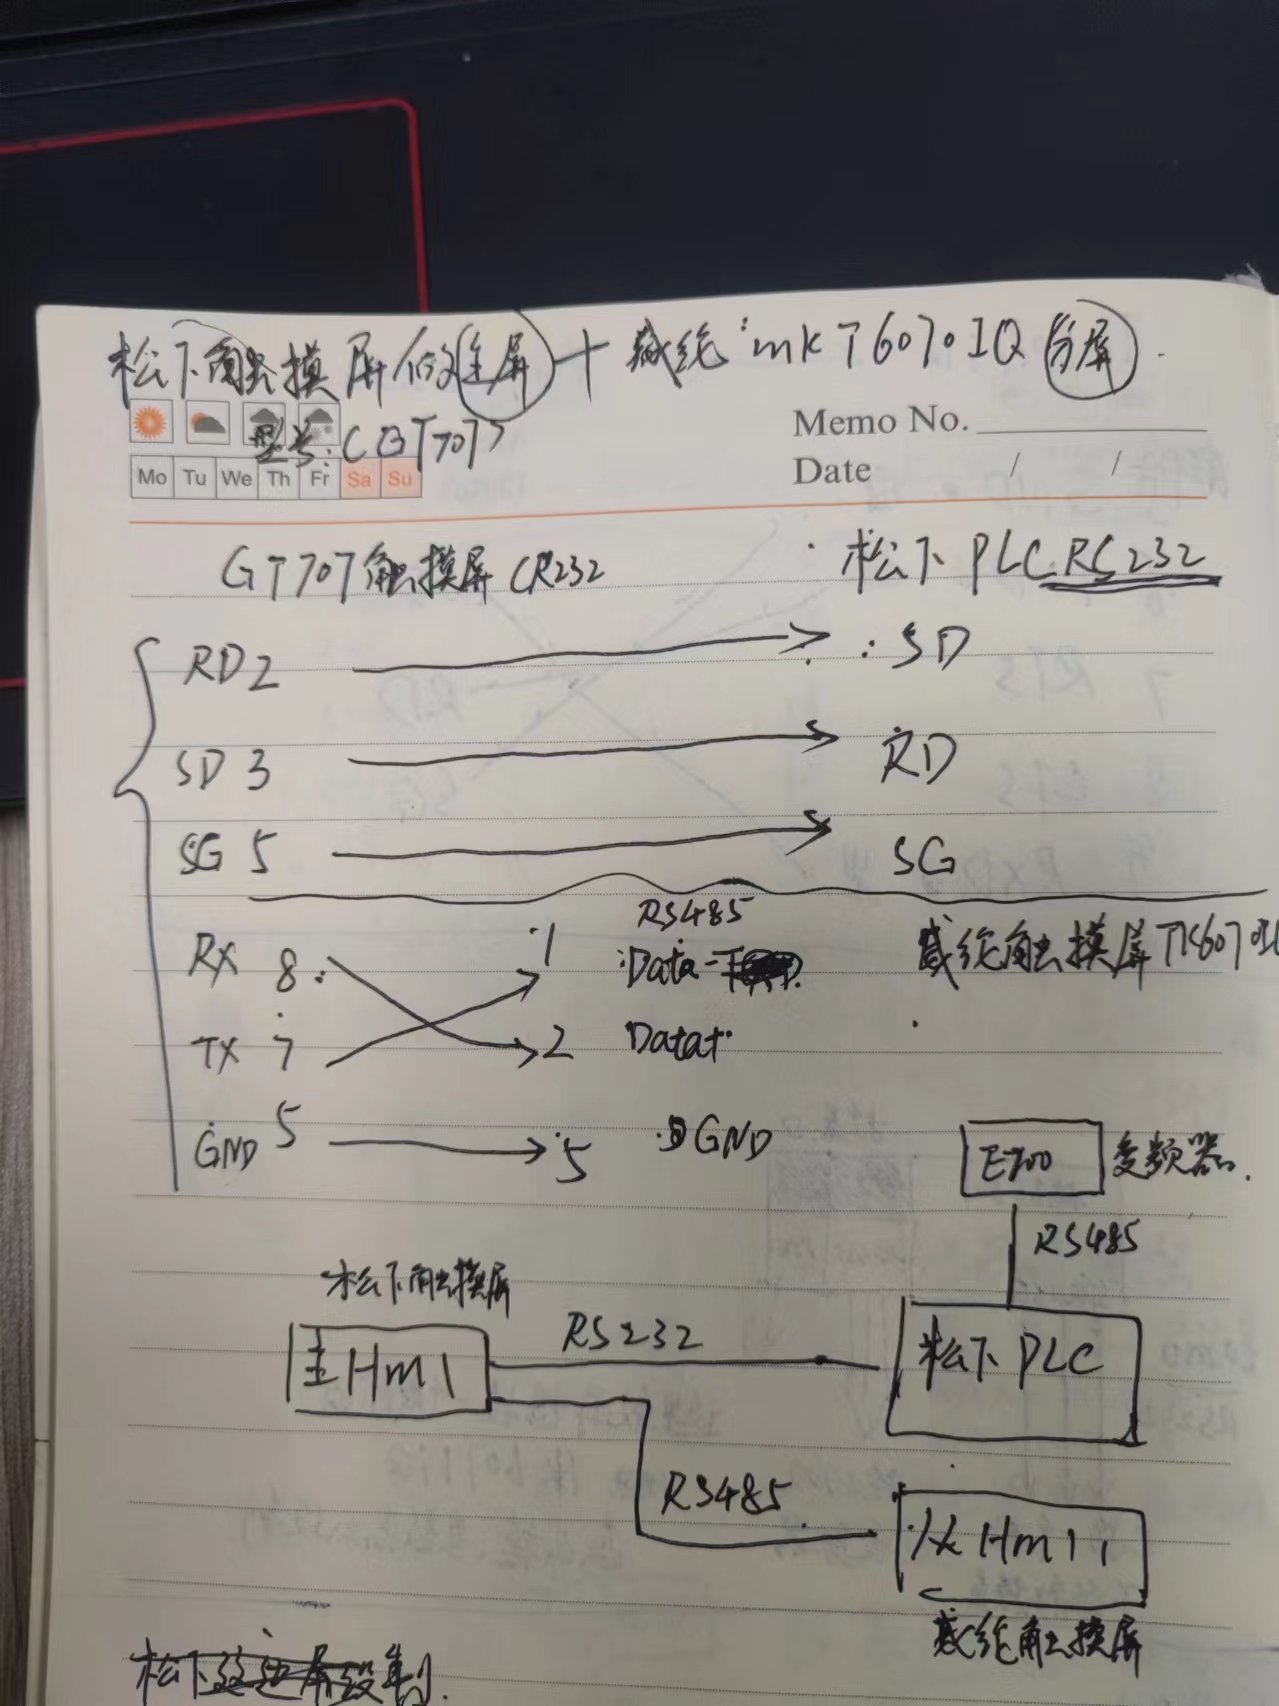 松下触摸屏做主屏 + 威纶 :mk T6070IQ 分屏.
型号: CGT707
Memo No.
Mo Tu We Th Fr Sa Su
Date / /
GT707触摸屏 CR232 松下 PLC RS232
RD 2 SD
SD 3 RD
SG 5 SG
RS485
RX 8 1 Data- 威纶触摸屏
TX 7 2 Data+
GND 5 5 GND
E700 变频器.
RS485
松下触摸屏
主Hm1 RS232 松下 PLC
RS485 从Hm1
威纶触摸屏